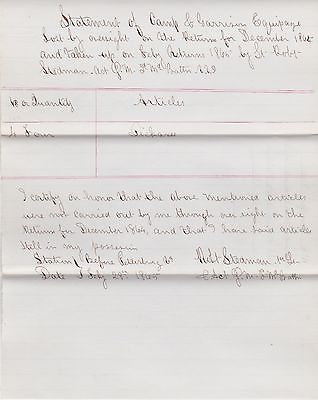 Statement of Camp & Garrison Equipage
lost by oversight on the Returns for December 1864
and taken up on Feby Returns 1865 by Lt Robt
Steaman Act Q.M.
No or Quantity Articles
4 Four
I certify on honor that the above mentioned articles
were not carried out by me through over sight on the
Return for December 1864, and that I have said articles
still in my possession
Station Before Petersburg Va Robt Steaman 1st Lt
Date Feby 28th 1865 & Act Q.M.